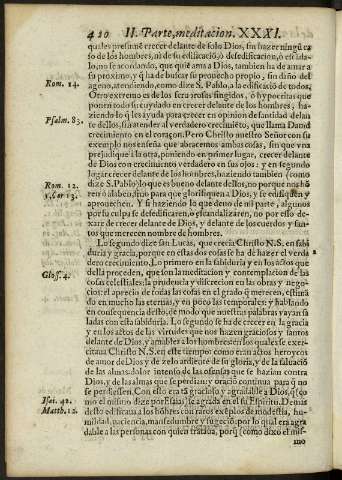 420 II. Parte, meditacion. XXXI.
quales presumē crecer delante de solo Dios, sin hazer ningū ca
so de los hombres, ni de su edificaciō, ò desedificacion, ò escāda-
lo, no se acordando, que quiē ama a Dios, tambien ha de amar a
su proximo, y q̄ ha de buscar su prouecho propio, sin daño del
Rom. 14. ageno, atendiendo, como dize S. Pablo, a la edificaciō de todos,
Otro extremo es de los seruorosos fingidos, ò hypocritas que
ponen todo su cuydado en crecer delante de los hombres, ha-
ziendo lo q̄ les ayuda para crecer en opinion de santidad delan
Psalm. 83. te dellos, sin atender al verdadero crecimiēto, que llama Dauid
crecimiento en el coraçon. Pero Christo nuestro Señor con su
exemplo nos enseña que abracemos ambas cosas, sin que vna
prejudique a la otra, poniendo en primer lugar, crecer delante
de Dios con crecimientos verdaderos en sus ojos: y en segundo
lugar crecer delante de los hombres, haziendo tambien (como
Rom. 12. dize S. Pablo) lo que es bueno delante dellos, no porque nos hō
1. Cor. 13. rē ò alaben, sino para que glorifiquen a Dios, y se edifiquen y
aprouechen. Y si haziendo lo que deuo de mi parte, alguno
por su culpa se desedificaren, ò escandalizaren, no por esso de-
xarè de crecer delante de Dios, y delante de los cuerdos y san-
tos que merecen nombre de hombres.
Lo segundo dize san Lucas, que crecia Christo N. S. en sabi
duria y gracia, porque en estas dos cosas se ha de hazer el verda
dero crecimiento. Lo primero en la sabiduria y en los actos que
della proceden, que son la meditacion y contemplacion de las
Gloss. 4. cosas celestiales: la prudencia y discrecion en las obras y nego-
cios: el aprecio de todas las cosas en el grado q̄ merecen, estimā
do en mucho las eternas, y en poco las temporales: y hablando
en consequencia desto, de modo que nuestras palabras vayan sa
ladas con esta sabiduria. Lo segundo se ha de crecer en la gracia
y en los actos de las virtudes que nos hazen graciosos y santos
delante de Dios, y amables a los hombres en los quales se exer-
citaua Christo N. S. en este tiempo como eran actos heroycos
de amor de Dios y de zelo ardiente de su gloria, y de la saluaciō
de las almas: dolor intenso de las ofensas que se hazian contra
Dios, y de las almas que se perdian: y oraciō continua para q̄ no
se perdiessen. Con esto era tā gracioso y agradable a Dios, q̄ (co
Isai. 42. mo el mismo dize por Esaias) se agrada en èl su Espiritu. Demas
Matth. 12. desto edificaua a los hōbres con raros exēplos de modestia, hu-
mildad, paciencia, mansedumbre y sugeciō: por lo qual era agra
dable a las personas con quien trataua, porq̄ (como dixo el mis-
mo